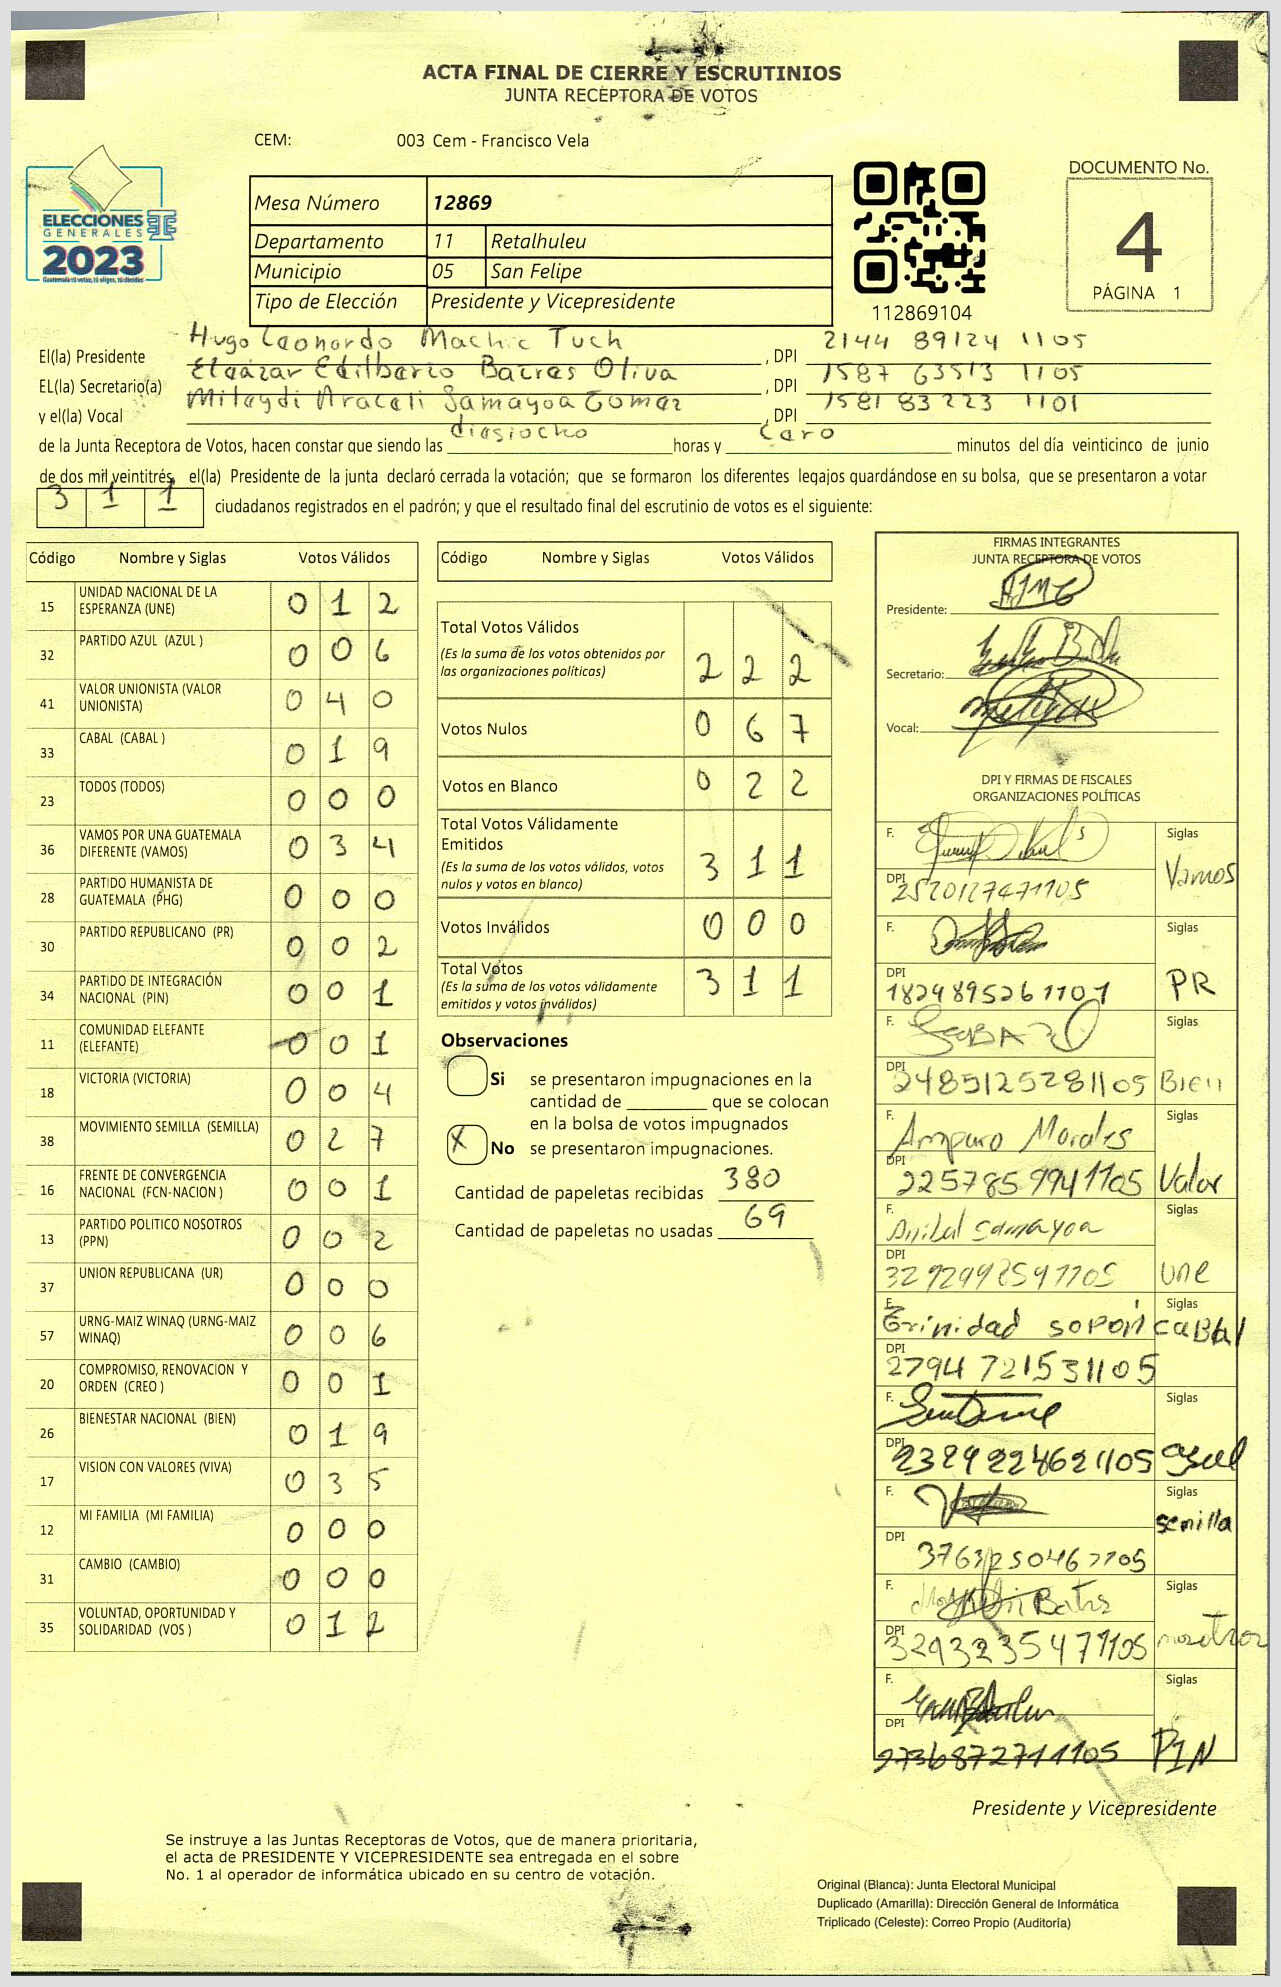 ACTA FINAL DE CIERRE Y ESCRUTINIOS
JUNTA RECEPTORA DE VOTOS
CEM: 003 Cem - Francisco Vela
ELECCIONES
GENERALES
2023
Guatemala tú votas, tú eliges, tú decides
Mesa Número 12869
Departamento 11 Retalhuleu
Municipio 05 San Felipe
Tipo de Elección Presidente y Vicepresidente
112869104
DOCUMENTO No.
4
PÁGINA 1
El(la) Presidente Hugo Leonardo Machic Tuch , DPI 2144 89124 1105
EL(la) Secretario(a) Eleazar Edilberto Barras Oliva , DPI 1587 63513 1105
y el(la) Vocal Milaydi Araceli Samayoa Gomez , DPI 1581 83223 1101
de la Junta Receptora de Votos, hacen constar que siendo las diesiocho horas y Cero minutos del día veinticinco de junio
de dos mil veintitrés, el(la) Presidente de la junta declaró cerrada la votación; que se formaron los diferentes legajos guardándose en su bolsa, que se presentaron a votar
3 1 1 ciudadanos registrados en el padrón; y que el resultado final del escrutinio de votos es el siguiente:
Código Nombre y Siglas Votos Válidos
15 UNIDAD NACIONAL DE LA
ESPERANZA (UNE) 0 1 2
32 PARTIDO AZUL (AZUL ) 0 0 6
41 VALOR UNIONISTA (VALOR
UNIONISTA) 0 4 0
33 CABAL (CABAL ) 0 1 9
23 TODOS (TODOS) 0 0 0
36 VAMOS POR UNA GUATEMALA
DIFERENTE (VAMOS) 0 3 4
28 PARTIDO HUMANISTA DE
GUATEMALA (PHG) 0 0 0
30 PARTIDO REPUBLICANO (PR) 0 0 2
34 PARTIDO DE INTEGRACIÓN
NACIONAL (PIN) 0 0 1
11 COMUNIDAD ELEFANTE
(ELEFANTE) 0 0 1
18 VICTORIA (VICTORIA) 0 0 4
38 MOVIMIENTO SEMILLA (SEMILLA) 0 2 7
16 FRENTE DE CONVERGENCIA
NACIONAL (FCN-NACION ) 0 0 1
13 PARTIDO POLITICO NOSOTROS
(PPN) 0 0 2
37 UNION REPUBLICANA (UR) 0 0 0
57 URNG-MAIZ WINAQ (URNG-MAIZ
WINAQ) 0 0 6
20 COMPROMISO, RENOVACION Y
ORDEN (CREO ) 0 0 1
26 BIENESTAR NACIONAL (BIEN) 0 1 9
17 VISION CON VALORES (VIVA) 0 3 5
12 MI FAMILIA (MI FAMILIA) 0 0 0
31 CAMBIO (CAMBIO) 0 0 0
35 VOLUNTAD, OPORTUNIDAD Y
SOLIDARIDAD (VOS ) 0 1 2
Código Nombre y Siglas Votos Válidos
Total Votos Válidos
(Es la suma de los votos obtenidos por
las organizaciones políticas) 2 2 2
Votos Nulos 0 6 7
Votos en Blanco 0 2 2
Total Votos Válidamente
Emitidos
(Es la suma de los votos válidos, votos
nulos y votos en blanco) 3 1 1
Votos Inválidos 0 0 0
Total Votos
(Es la suma de los votos válidamente
emitidos y votos inválidos) 3 1 1
Observaciones
Si se presentaron impugnaciones en la
cantidad de que se colocan
en la bolsa de votos impugnados
X No se presentaron impugnaciones.
Cantidad de papeletas recibidas 380
Cantidad de papeletas no usadas 69
FIRMAS INTEGRANTES
JUNTA RECEPTORA DE VOTOS
Presidente:
Secretario:
Vocal:
DPI Y FIRMAS DE FISCALES
ORGANIZACIONES POLÍTICAS
F. Siglas
DPI 2520127471105 Vamos
F. Siglas
DPI 1824895261101 PR
F. Siglas
DPI 2485125281105 Bien
F. Amparo Morales Siglas
DPI 2257859941105 Valor
F. Anibal Samayoa Siglas
DPI 3292992591105 une
F. Trinidad sopón Siglas
DPI 2794721531105 CABAl
F. Siglas
DPI 2329224621105 asul
F. Siglas
DPI 3763250467705 semilla
F. Siglas
DPI 3293235471105 nosotros
F. Siglas
DPI 2736872711105 PIN
Presidente y Vicepresidente
Se instruye a las Juntas Receptoras de Votos, que de manera prioritaria,
el acta de PRESIDENTE Y VICEPRESIDENTE sea entregada en el sobre
No. 1 al operador de informática ubicado en su centro de votación.
Original (Blanca): Junta Electoral Municipal
Duplicado (Amarilla): Dirección General de Informática
Triplicado (Celeste): Correo Propio (Auditoría)